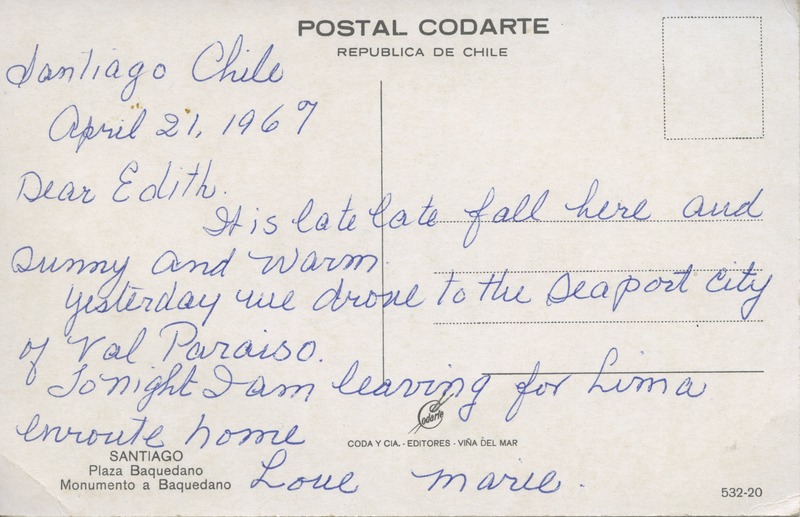 POSTAL CODARTE
REPUBLICA DE CHILE
Santiago Chile
April 21, 1967
Dear Edith.
It is late late fall here and
sunny and warm
yesterday we drove to the seaport city
of Val Paraiso.
Tonight I am leaving for Lima
enroute home
Love Marie.
Codarte
CODA Y CIA. - EDITORES - VIÑA DEL MAR
SANTIAGO
Plaza Baquedano
Monumento a Baquedano
532-20